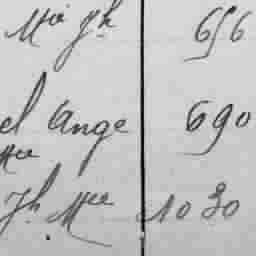 Mia Jh 656
el Ange 690
Mie
Jh. Mie 1030